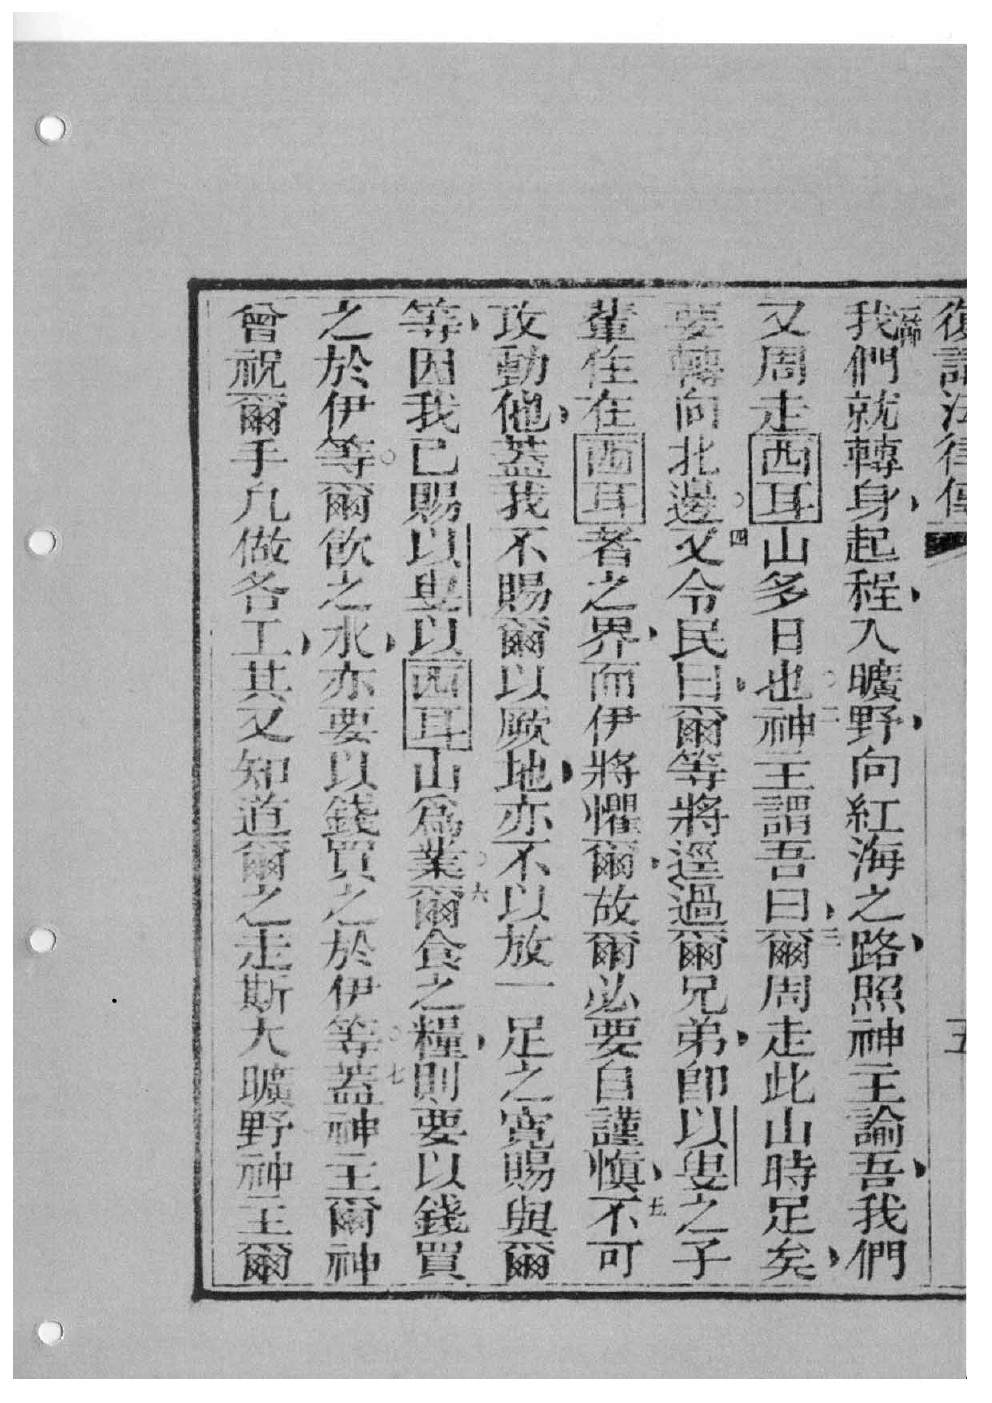 復講法律傳
五
我們就轉身起程入曠野向紅海之路照神主諭吾我們
又周走西耳山多日也二神主謂吾曰三爾周走此山時足矣
要轉向北邊四又令民曰爾等將逕過爾兄弟卽以叟之子
輩住在西耳者之界而伊將懼爾故爾必要自謹慎五不可
攻動他蓋我不賜爾以厥地亦不以放一足之寬賜與爾
等因我已賜以叟以西耳山爲業六爾食之糧則要以錢買
之於伊等爾飲之水亦要以錢買之於伊等七蓋神主爾神
曾祝爾手凢做各工其又知道爾之走斯大曠野神主爾